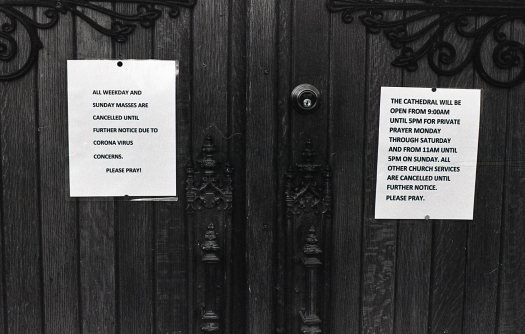 ALL WEEKDAY AND
SUNDAY MASSES ARE
CANCELLED UNTIL
FURTHER NOTICE DUE TO
CORONA VIRUS
CONCERNS.
PLEASE PRAY!
THE CATHEDRAL WILL BE
OPEN FROM 9:00AM
UNTIL 5PM FOR PRIVATE
PRAYER MONDAY
THROUGH SATURDAY
AND FROM 11AM UNTIL
5PM ON SUNDAY. ALL
OTHER CHURCH SERVICES
ARE CANCELLED UNTIL
FURTHER NOTICE.
PLEASE PRAY.